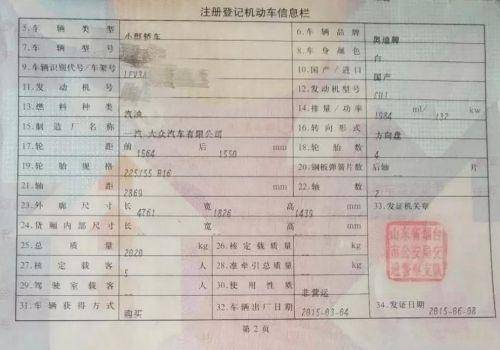 注册登记机动车信息栏
5.车辆类型 小型轿车 6.车辆品牌 奥迪牌
7.车辆型号 8.车身颜色 白
9.车辆识别代号/车架号 LFV3A 10.国产/进口 国产
11.发动机号 12.发动机型号 CUJ
13.燃料种类 汽油 14.排量/功率 1984 ml/ 132 kw
15.制造厂名称 一汽-大众汽车有限公司 16.转向形式 方向盘
17.轮距 前 1564 后 1550 mm 18.轮胎数 4
19.轮胎规格 225/55 R16 20.钢板弹簧片数 后轴 片
21.轴距 2869 mm 22.轴数 2
23.外廓尺寸 长 4761 宽 1826 高 1439 mm 33.发证机关章
24.货厢内部尺寸 长 宽 高 mm
25.总质量 2020 kg 26.核定载质量 kg
27.核定载客 5 人 28.准牵引总质量 kg
29.驾驶室载客 人 30.使用性质 非营运
31.车辆获得方式 购买 32.车辆出厂日期 2015-03-04 34.发证日期 2015-06-08
山东省烟台
市公安局交
通警察支队
第2页